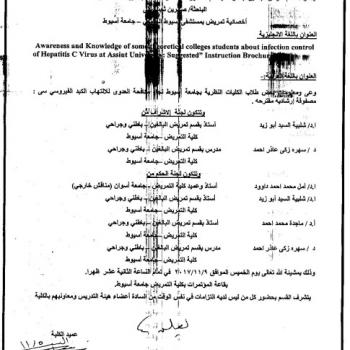 الباحثة/ صابرين
أخصائية تمريض بمستشفى أسيوط – جامعة أسيوط
العنوان باللغة الانجليزية
Awareness and Knowledge of some theoretical colleges students about infection control
of Hepatitis C Virus at Assiut University: Suggested" Instruction Brochure
العنوان باللغة العربية
وعى ومعلومات بعض طلاب الكليات النظرية بجامعة أسيوط مكافحة العدوى للالتهاب الكبد الفيروسي سى :
مصفوفة إرشادية مقترحه .
وتتكون لجنة الإشراف من
ا.د/ شلبية السيد أبو زيد أستاذ بقسم تمريض البالغين – باطني وجراحي
كلية التمريض – جامعة أسيوط
د / سهره زكى عاذر احمد مدرس بقسم تمريض البالغين – باطني وجراحي
كلية التمريض – جامعة أسيوط
وتتكون لجنة الحكم من
ا.د/ أمل محمد احمد داوود أستاذ وعميد كلية التمريض – جامعة أسوان (مناقش خارجي)
ا.د/ شلبية السيد أبو زيد أستاذ بقسم تمريض البالغين – باطني وجراحي
كلية التمريض – جامعة أسيوط
أ.د / ماجدة محمد احمد أستاذ بقسم تمريض البالغين – باطني وجراحي
كلية التمريض – جامعة أسيوط
د / سهره زكى عاذر احمد مدرس بقسم تمريض البالغين – باطني وجراحي
كلية التمريض – جامعة أسيوط
وذلك بمشيئة الله تعالى يوم الخميس الموافق ٢٠١٧/١١/٩ في تمام الساعة الثانية عشر ظهرا.
بقاعة المؤتمرات بكلية التمريض جامعة أسيوط
يتشرف القسم بحضور كل من ليس لديه التزامات في نفس الوقت من السادة أعضاء هيئة التدريس ومعاونيهم بالكلية
عميد الكلية